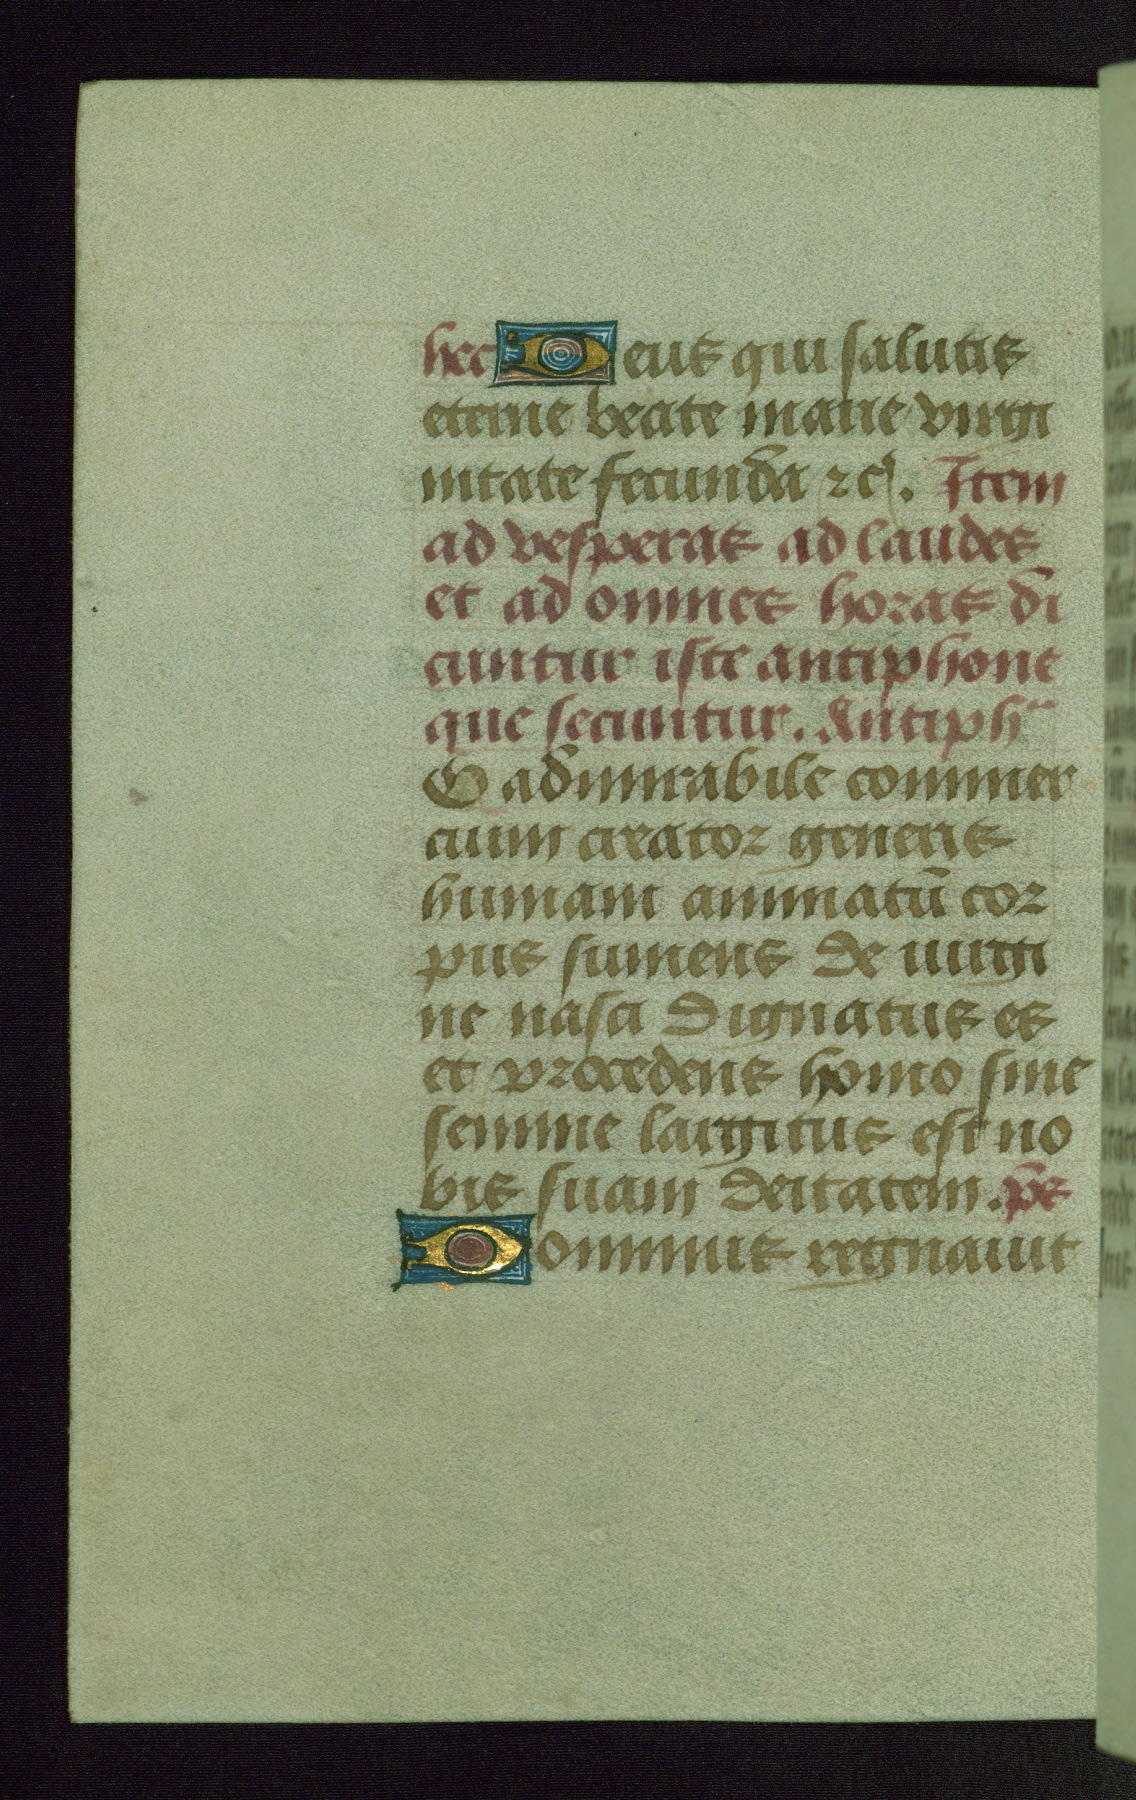 hec Deus qui salutis
eterne beate marie virgi
nitate fecunda ⁊c̃. Item
ad vesperas ad laudes
et ad omnes horas di
cuntur iste antiphone
que secuntur. Antiphᵃ
O admirabile commer
cium creator generis
humani animatū cor
pus sumens de uirgi
ne nasci dignatus es
et procedens homo sine
semine largitus est no
bis suam deitatem. p̄s
Dominus regnauit